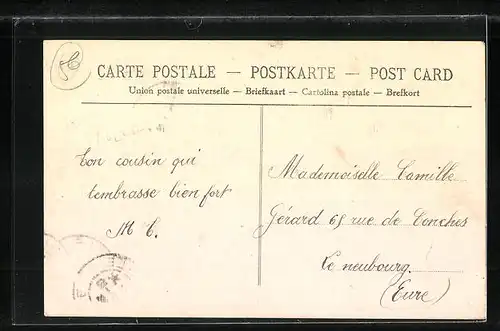 CARTE POSTALE — POSTKARTE — POST CARD
Union postale universelle — Briefkaart — Cartolina postale — Brefkort
Ton cousin qui
tembrasse bien fort
M C.
Mademoiselle Camille
Gérard 65 rue de Conches
Le neubourg.
(Eure)